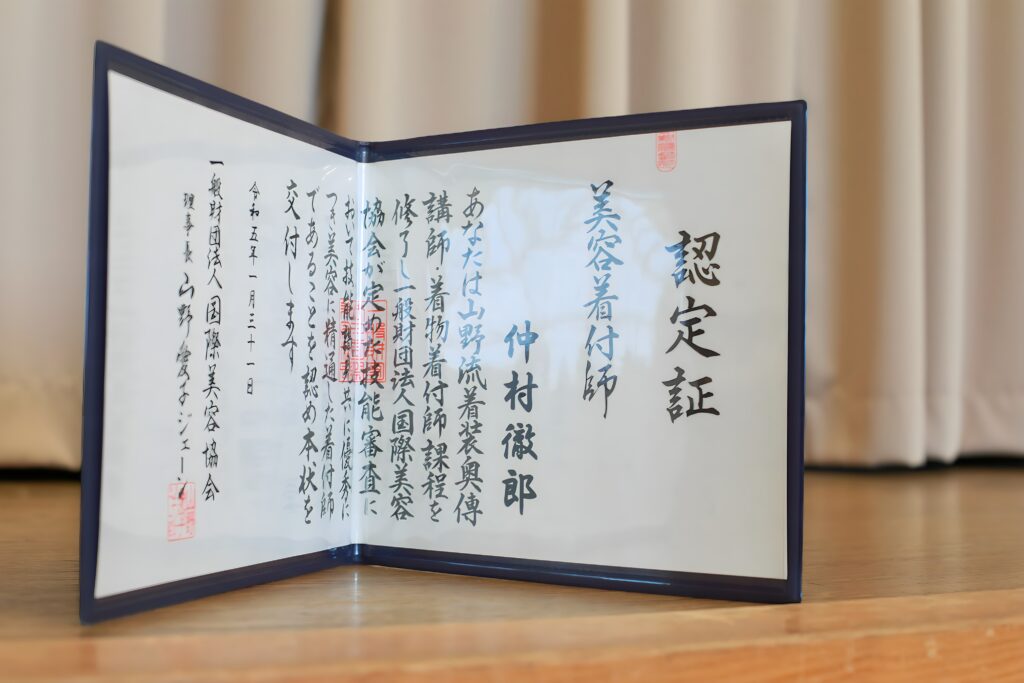 認定証
美容着付師
仲村徹郎
あなたは山野流着装奥傳
講師・着物着付師課程を
修了し一般財団法人国際美容
協会が定めた技能審査に
おいて技能・容姿共に優秀に
つき美容に精通した着付師
であることを認め本状を
交付します
令和五年一月三十一日
一般財団法人国際美容協会
理事長 山野愛子ジェーン